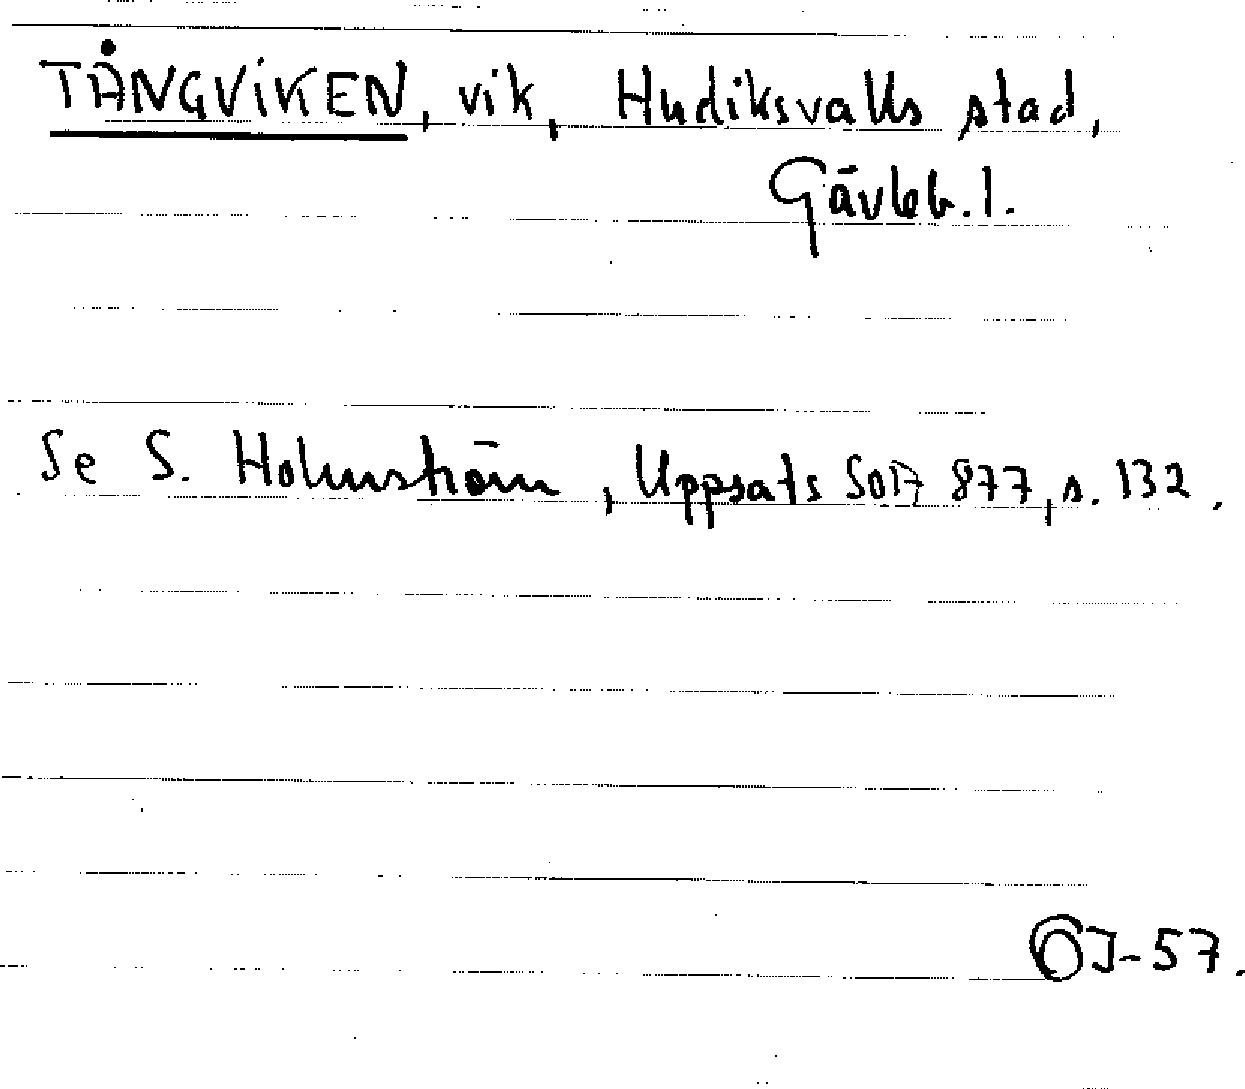 TÅNGVIKEN, vik, Hudiksvalls stad,
Gävleb. l.
Se S. Holmström, Uppsats SOA 877, s. 132.
ÖJ-57.